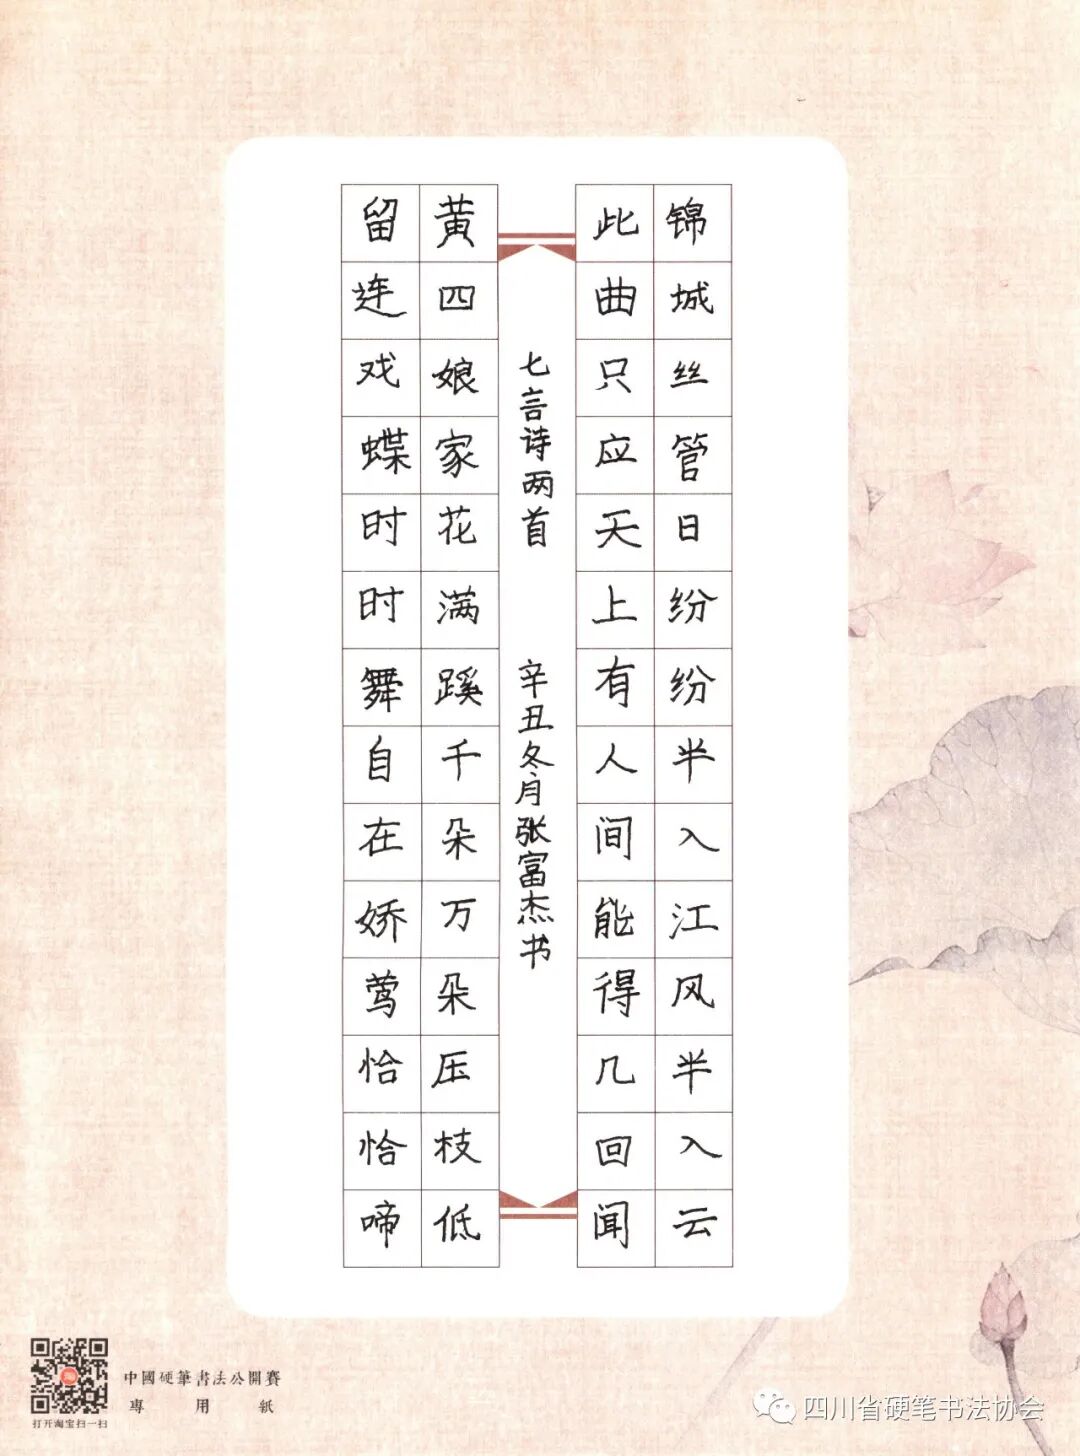 锦城丝管日纷纷半入江风半入云
此曲只应天上有人间能得几回闻
七言诗两首
辛丑冬月张富杰书
黄四娘家花满蹊千朵万朵压枝低
留连戏蝶时时舞自在娇莺恰恰啼
打开淘宝扫一扫
中國硬筆書法公開賽
專用紙
四川省硬笔书法协会